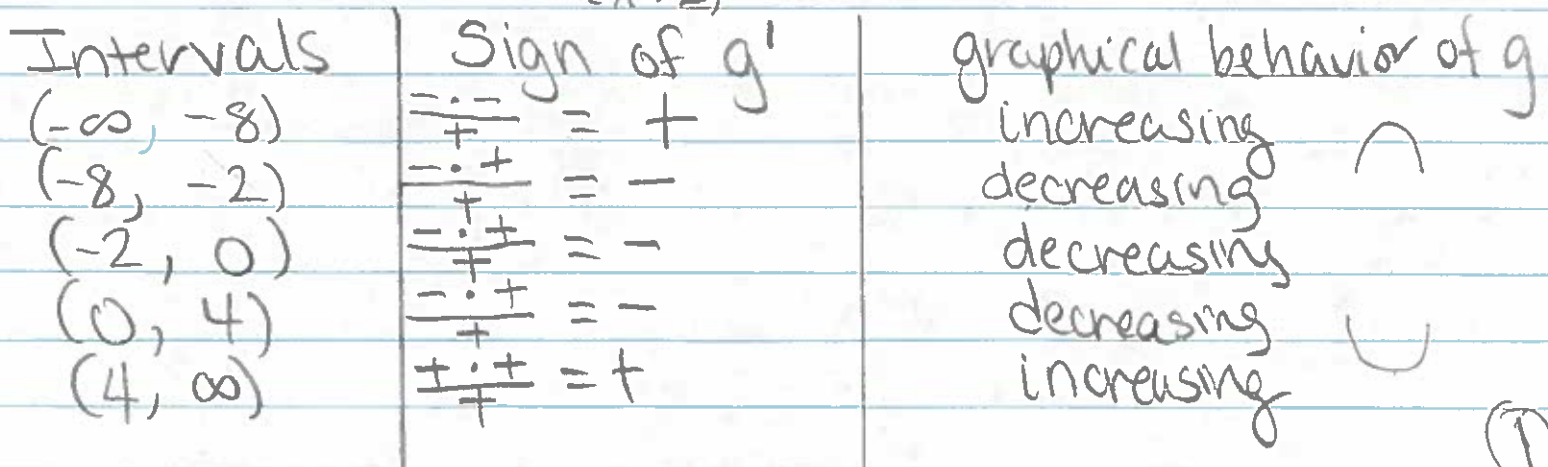 Intervals | Sign of g' | graphical behavior of g
(-∞, -8) | (- · -)/+ = + | increasing
(-8, -2) | (- · +)/+ = - | decreasing
(-2, 0) | (- · +)/+ = - | decreasing
(0, 4) | (- · +)/+ = - | decreasing
(4, ∞) | (+ · +)/+ = + | increasing